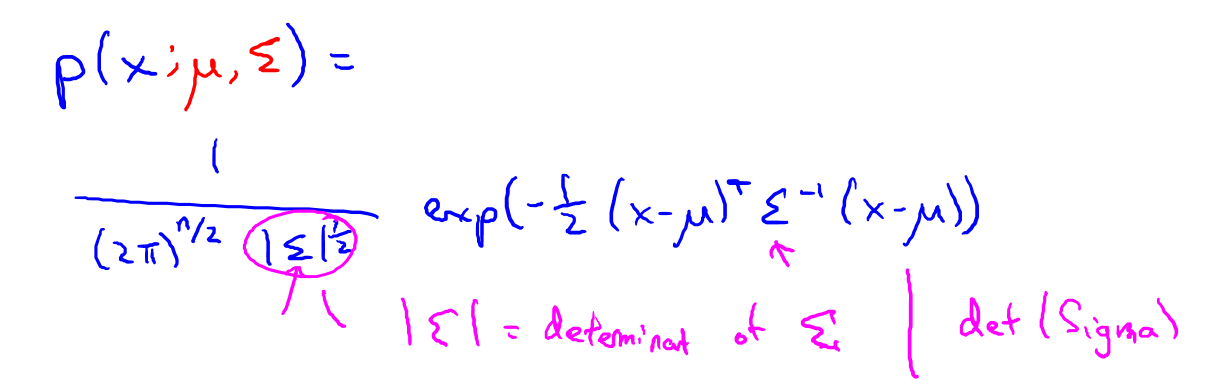 p(x;μ,Σ) =
1
(2π)^{n/2} |Σ|^{1/2} exp(-1/2 (x-μ)^T Σ^{-1} (x-μ))
|Σ| = determinat of Σ | det (Sigma)